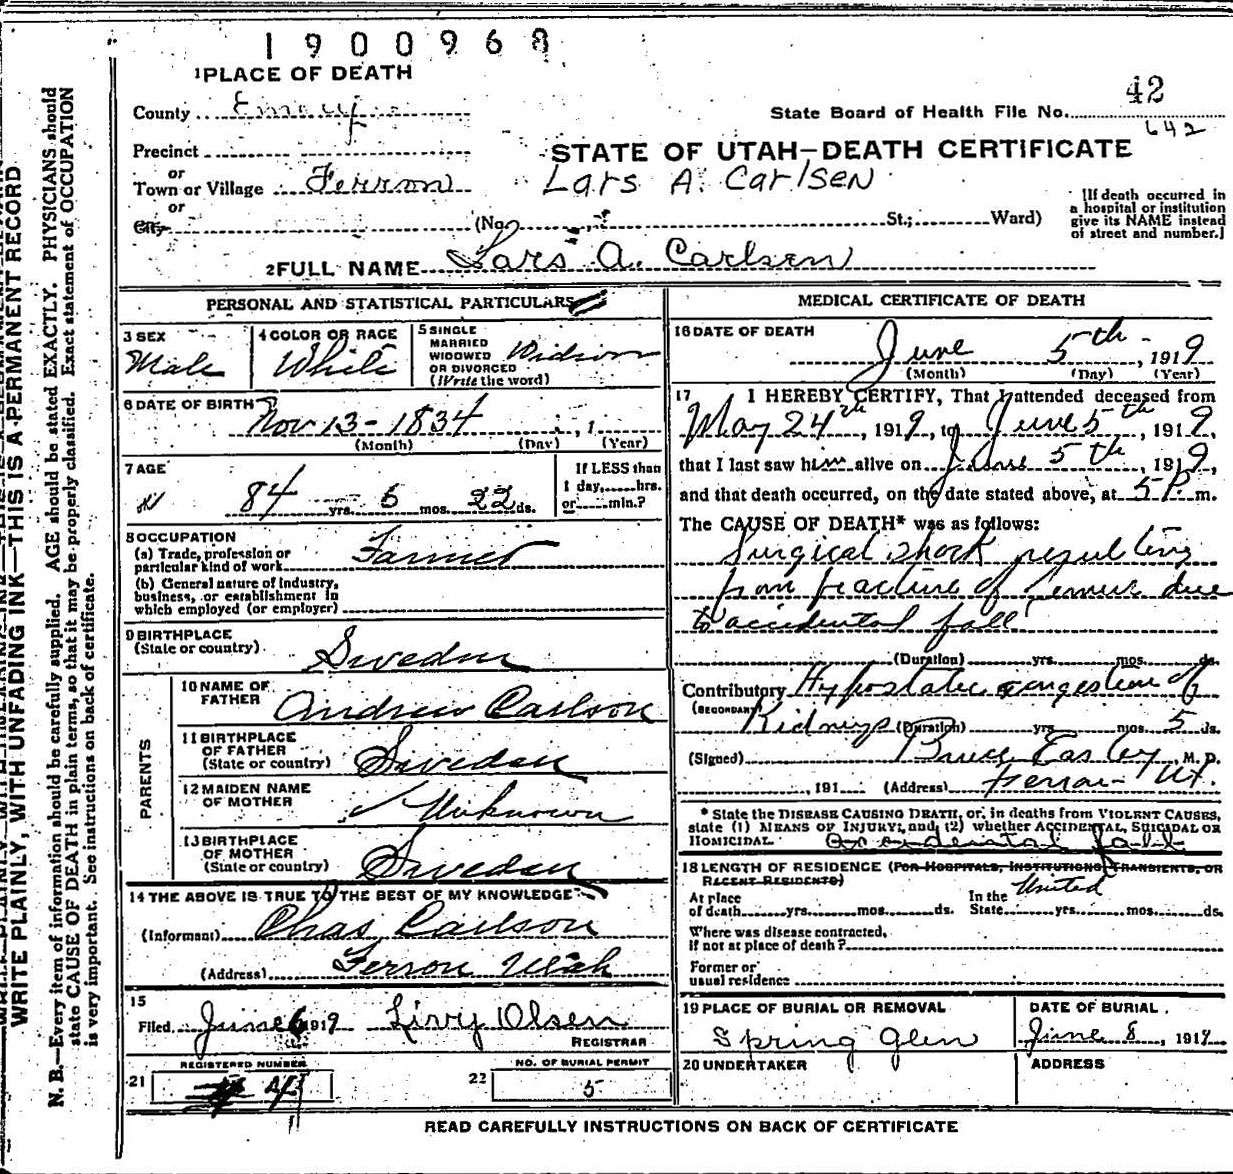 1900968
1 PLACE OF DEATH
County Emery
42
State Board of Health File No.
642
Precinct
or
Town or Village Ferron
or
City
STATE OF UTAH—DEATH CERTIFICATE
Lars A. Carlsen
(No. St.; Ward)
[If death occurred in
a hospital or institution
give its NAME instead
of street and number.]
2 FULL NAME Lars A. Carlsen
PERSONAL AND STATISTICAL PARTICULARS
3 SEX
Male
4 COLOR OR RACE
White
5 SINGLE
MARRIED
WIDOWED
OR DIVORCED
(Write the word)
Widower
6 DATE OF BIRTH
Nov 13 - 1834, 1
(Month) (Day) (Year)
7 AGE
84 yrs. 6 mos. 22 ds.
If LESS than
1 day, hrs.
or min.?
8 OCCUPATION
(a) Trade, profession or
particular kind of work Farmer
(b) General nature of Industry,
business, or establishment in
which employed (or employer)
9 BIRTHPLACE
(State or country) Sweden
PARENTS
10 NAME OF
FATHER Andrew Carlson
11 BIRTHPLACE
OF FATHER
(State or country) Sweden
12 MAIDEN NAME
OF MOTHER Unknown
13 BIRTHPLACE
OF MOTHER
(State or country) Sweden
14 THE ABOVE IS TRUE TO THE BEST OF MY KNOWLEDGE
(Informant) Chas Carlson
(Address) Ferron Utah
15
Filed June 6 1919 Livy Olsen
REGISTRAR
REGISTERED NUMBER
21
NO. OF BURIAL PERMIT
22 5
MEDICAL CERTIFICATE OF DEATH
16 DATE OF DEATH
June 5th - , 1919
(Month) (Day) (Year)
17 I HEREBY CERTIFY, That I attended deceased from
May 24th, 1919, to June 5th, 1919,
that I last saw him alive on June 5th, 1919,
and that death occurred, on the date stated above, at 5 P. m.
The CAUSE OF DEATH* was as follows:
Surgical shock resulting
from fracture of femur due
to accidental fall
(Duration) yrs. mos. ds.
Contributory Hypostatic congestion of
(SECONDARY) Kidneys (Duration) yrs. mos. 5 ds.
(Signed) Bruce Easley, M. D.
, 191 (Address) Ferron Ut.
* State the DISEASE CAUSING DEATH, or, in deaths from VIOLENT CAUSES,
state (1) MEANS OF INJURY; and (2) whether ACCIDENTAL, SUICIDAL OR
HOMICIDAL. Accidental fall
18 LENGTH OF RESIDENCE (FOR HOSPITALS, INSTITUTIONS, TRANSIENTS, OR
RECENT RESIDENTS)
At place
of death yrs. mos. ds.
In the United
State yrs. mos. ds.
Where was disease contracted,
if not at place of death?
Former or
usual residence
19 PLACE OF BURIAL OR REMOVAL
Spring Glen
DATE OF BURIAL
June 8, 1919
20 UNDERTAKER
ADDRESS
READ CAREFULLY INSTRUCTIONS ON BACK OF CERTIFICATE
WRITE PLAINLY, WITH UNFADING INK—THIS IS A PERMANENT RECORD
N. B.—Every item of information should be carefully supplied. AGE should be stated EXACTLY. PHYSICIANS should
state CAUSE OF DEATH in plain terms, so that it may be properly classified. Exact statement of OCCUPATION
is very important. See instructions on back of certificate.